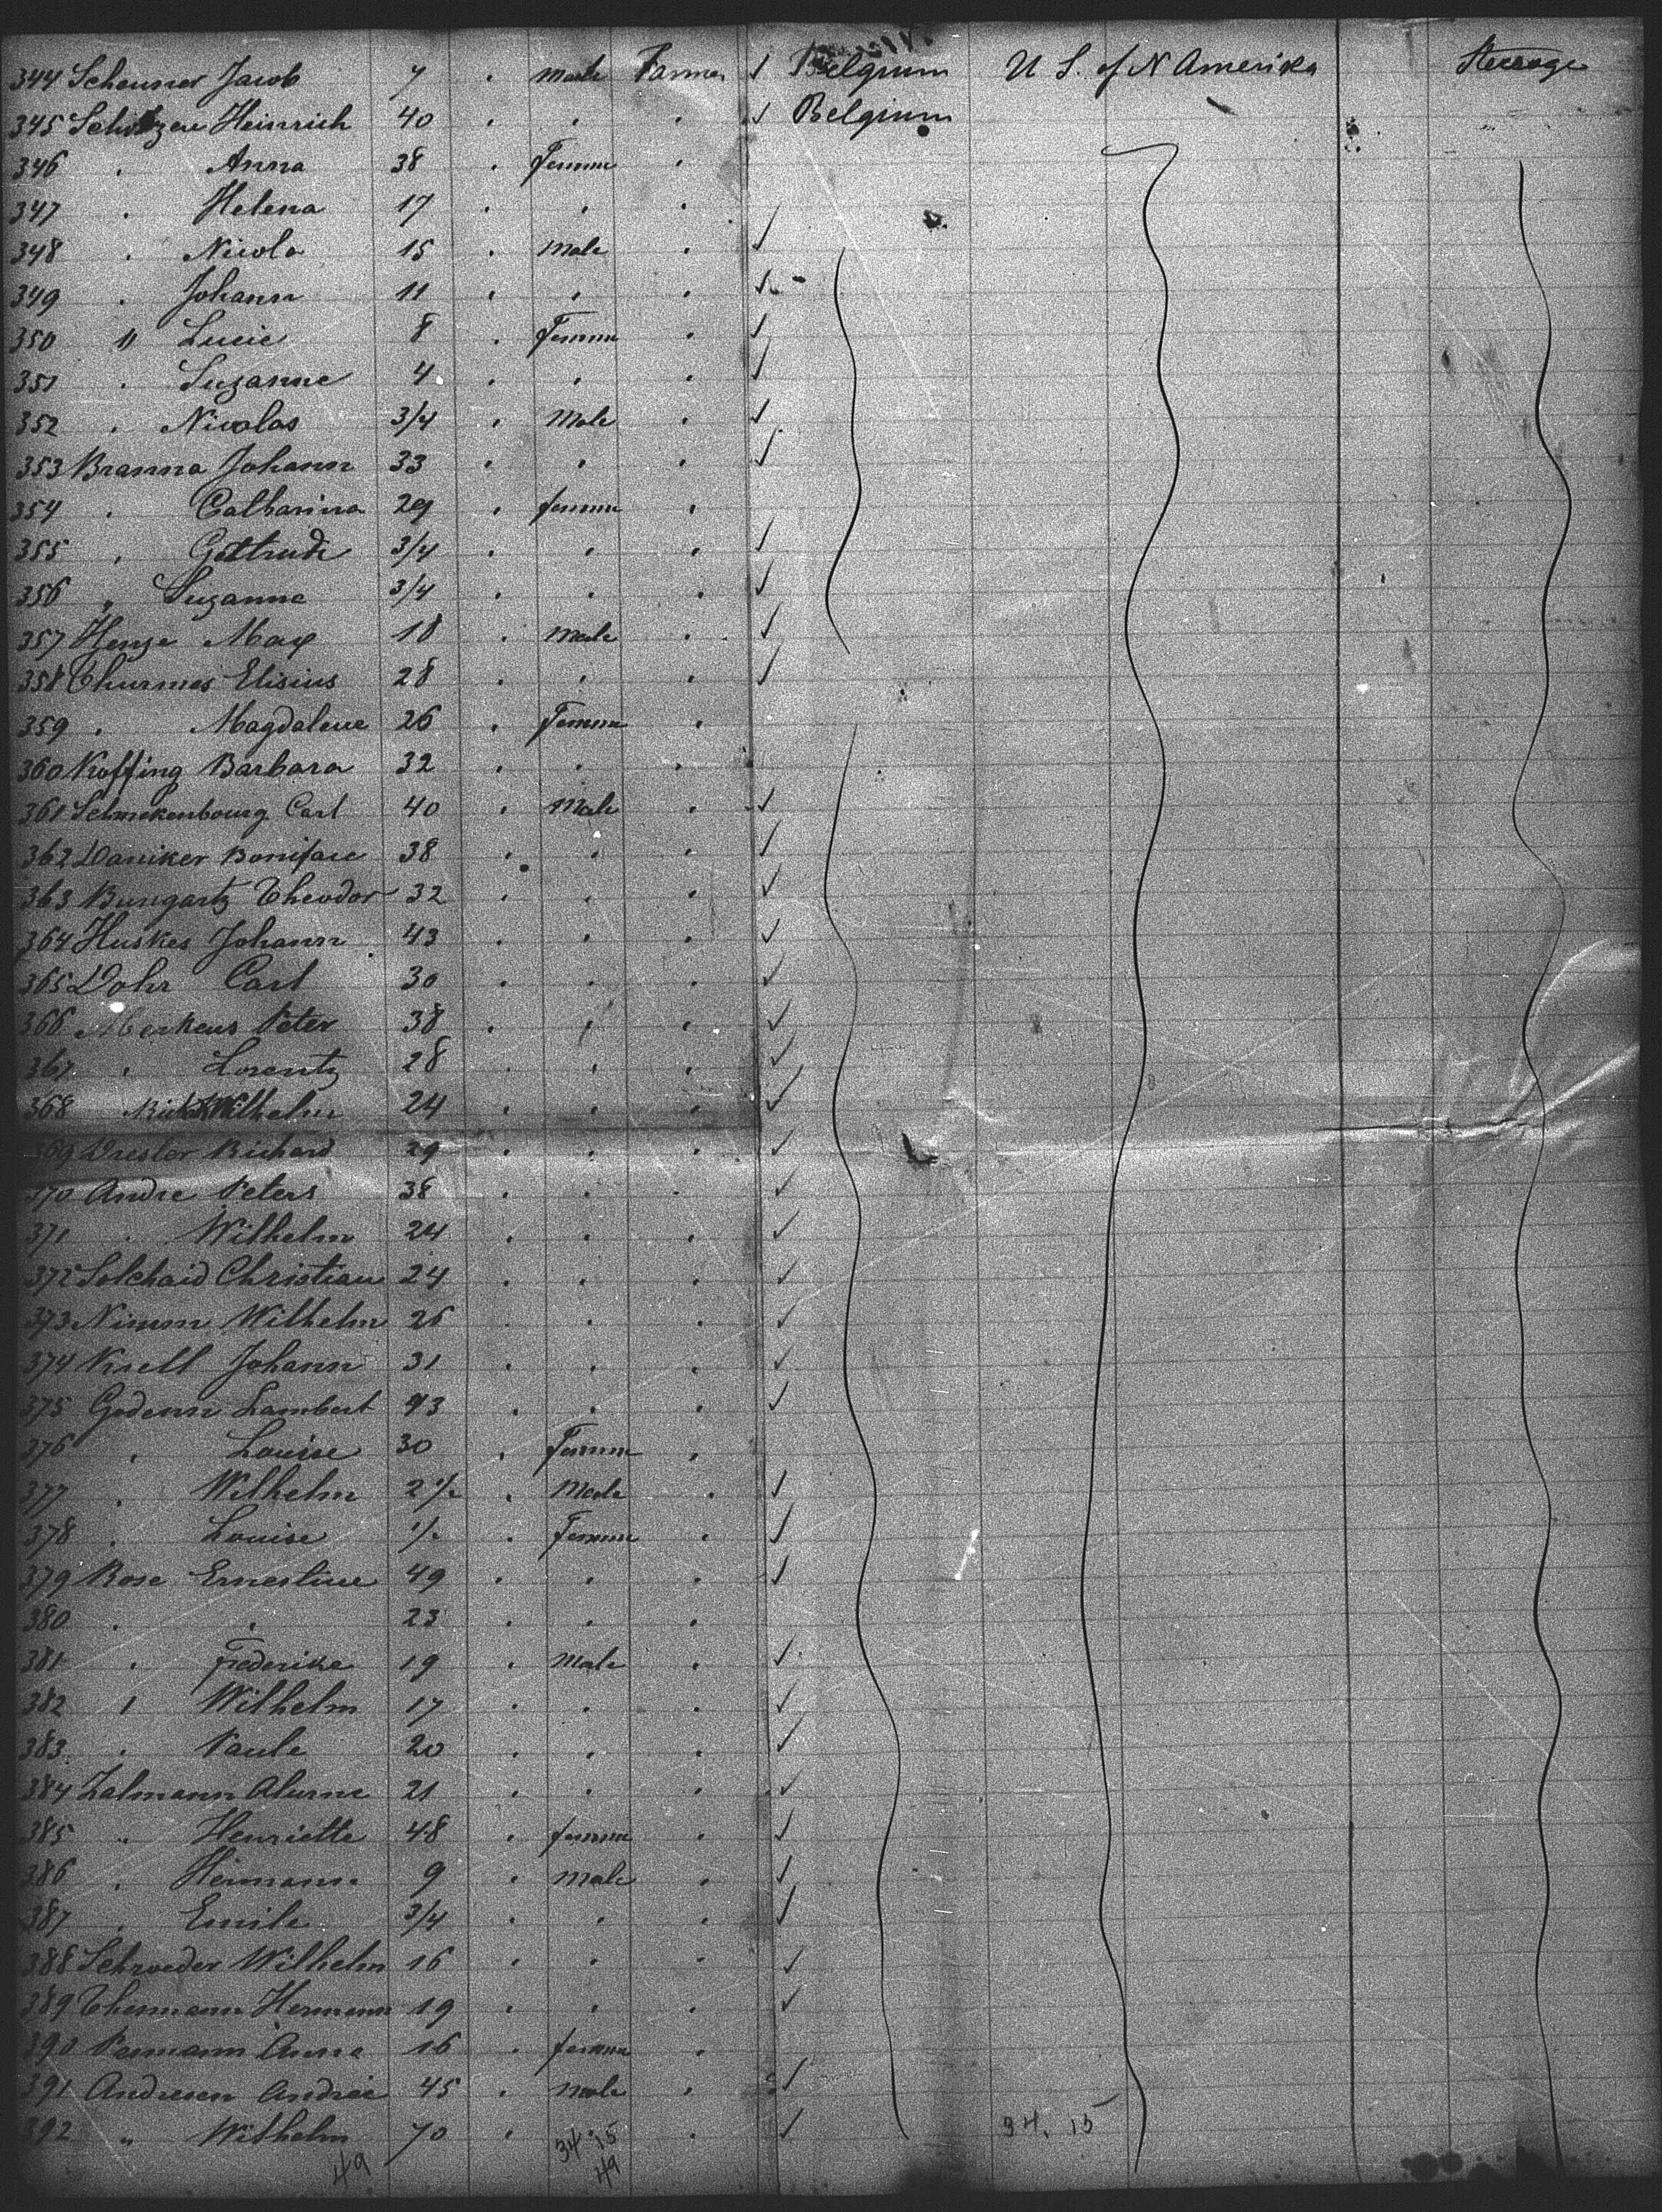 344 Scheuner Jacob 7 . male Farmer √ Belgium U S. of N Amerika Steerage
345 Heinrich 40 . . . √ Belgium
346 . Anna 38 . femme .
347 . Helena 17 . . .
348 . Nicola 15 . Male . √
349 . Johann 11 . . . √
350 " Lucie 8 . Femme . √
351 . Suzanne 4 . . . √
352 . Nicolas 3/4 . Male . √
353 Branna Johann 33 . . . √
354 . Catharina 29 . femme .
355 . Gettrude 3/4 . . . √
356 " Suzanne 3/4 . . . √
357 Henze Max 18 . Male . √
358 Thurmes Elisius 28 . . . √
359 . Magdalene 26 . Femme .
360 Koffing Barbara 32 . . .
361 Schmekenbourg Carl 40 . Male . √
362 Daniker Boniface 38 . . . √
363 Bungartz Theodor 32 . . . √
364 Huskes Johann 43 . . . √
365 Dohr Carl 30 . . . √
366 Merkens Peter 38 . . . √
367 . Lorentz 28 . . . √
368 Wilhelm 24 . . . √
369 Dresler Richard 29 . . . √
370 Andre Peters 38 . . . √
371 . Wilhelm 24 . . . √
372 Solchaid Christian 24 . . . √
373 Nimm Wilhelm 26 . . . √
374 Krell Johann 31 . . . √
375 Godenn Lambert 43 . . . √
376 . Louise 30 . Femme .
377 . Wilhelm 2 1/2 . Male . √
378 . Louise 1/2 . Femme . √
379 Rose Ernestine 49 . . . √
380 . . 23 . . .
381 . Frederike 19 . Male . √
382 " Wilhelm 17 . . . √
383 . Paule 20 . . . √
384 Zalmann 21 . . . √
385 " Henriette 48 . femme . √
386 . Hermann 9 . Male . √
387 . Emile 3/4 . . . √
388 Schroeder Wilhelm 16 . . . √
389 Hermann 19 . . . √
390 Anna 16 . femme .
391 Andresen Andrée 45 . Male . √
392 " Wilhelm 70 . . √
34.15 34.15
49 49